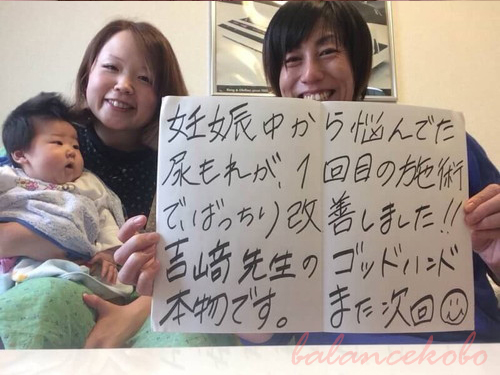 妊娠中から悩んでた
尿もれが、1回目の施術
でばっちり改善しました!!
吉﨑先生のゴッドハンド
本物です。また次回☺
balancekobo